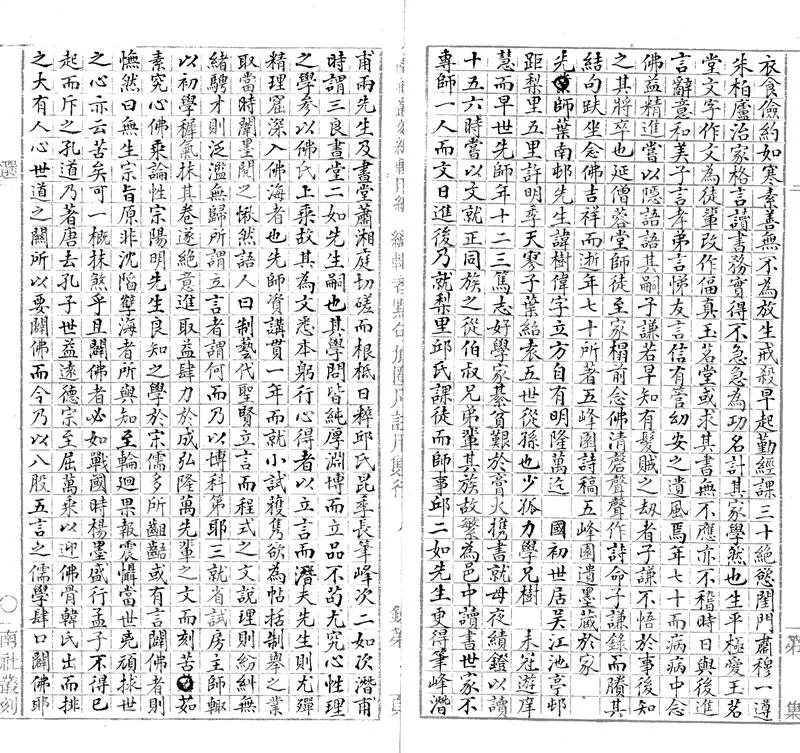 衣食儉約如寒素善無不為放生戒殺早起勤經課三十絕慾閨門肅穆一遵
朱柏廬治家格言讀書務實得不急急為功名計其家學然也生平極愛玉茗
堂文字作文為徒輩改作偪真玉茗堂或求其書無不應亦不稽時日與後進
言辭意和美子言孝弟言悌友言信有管幼安之遺風焉年七十而病病中念
佛益精進嘗以隱語語其嗣子謙若早知有髮賊之刧者子謙不悟於事後知
之其將卒也延僧蓉堂師徒至家榻前念佛清磬聲聲作詩命子謙錄而賸其
結句趺坐念佛吉祥而逝年七十所著五峰園詩稿五峰園遺墨藏於家
先師葉南邨先生諱樹偉字立方自有明隆萬迄 國初世居吳江池亭邨
距梨里五里許明季天寥子葉紹袁五世從孫也少孤力學兄樹 未冠遊庠
慧而早世先師年十二三篤志好學家綦貧艱於膏火攜書就母夜績鐙以讀
十五六時嘗以文就正同族之從伯叔兄弟輩其族故繁為邑中讀書世家不
專師一人而文日進後乃就梨里邱氏課徒而師事邱二如先生更得筆峰潛
甫兩先生及畫堂蕭湘庭切磋而根柢日粹邱氏昆季長筆峰次二如次潛甫
時謂三良畫堂二如先生嗣也其學問皆純厚淵博而立品不苟尤究心性理
之學參以佛氏上乘故其為文悉本躬行心得者以立言而潛夫先生則尤殫
精理窟深入佛海者也先師資講貫一年而就小試獲雋欲為帖括制舉之業
取當時闈墨閱之愀然語人曰制藝代聖賢立言而程式之文說理則紛糾無
緒騁才則泛濫無歸所謂立言者謂何而乃以博科第耶三就省試房主師輙
以初學穉氣抹其卷遂絕意進取益肆力於成弘隆萬先輩之文而刻苦茹
素究心佛乘論性宗陽明先生良知之學於宋儒多所齟齬或有言闢佛者則
憮然曰無生宗旨原非沈陷孽海者所與知至輪迴果報震懾當世兇頑捄世
之心亦云苦矣可一概抹煞乎且闢佛者必如戰國時楊墨盛行孟子不得已
起而斥之孔道乃著唐去孔子世益遠德宗至屈萬乘以迎佛骨韓氏出而排
之大有人心世道之關所以要闢佛而今乃以八股五言之儒學肆口闢佛耶
南社叢刻